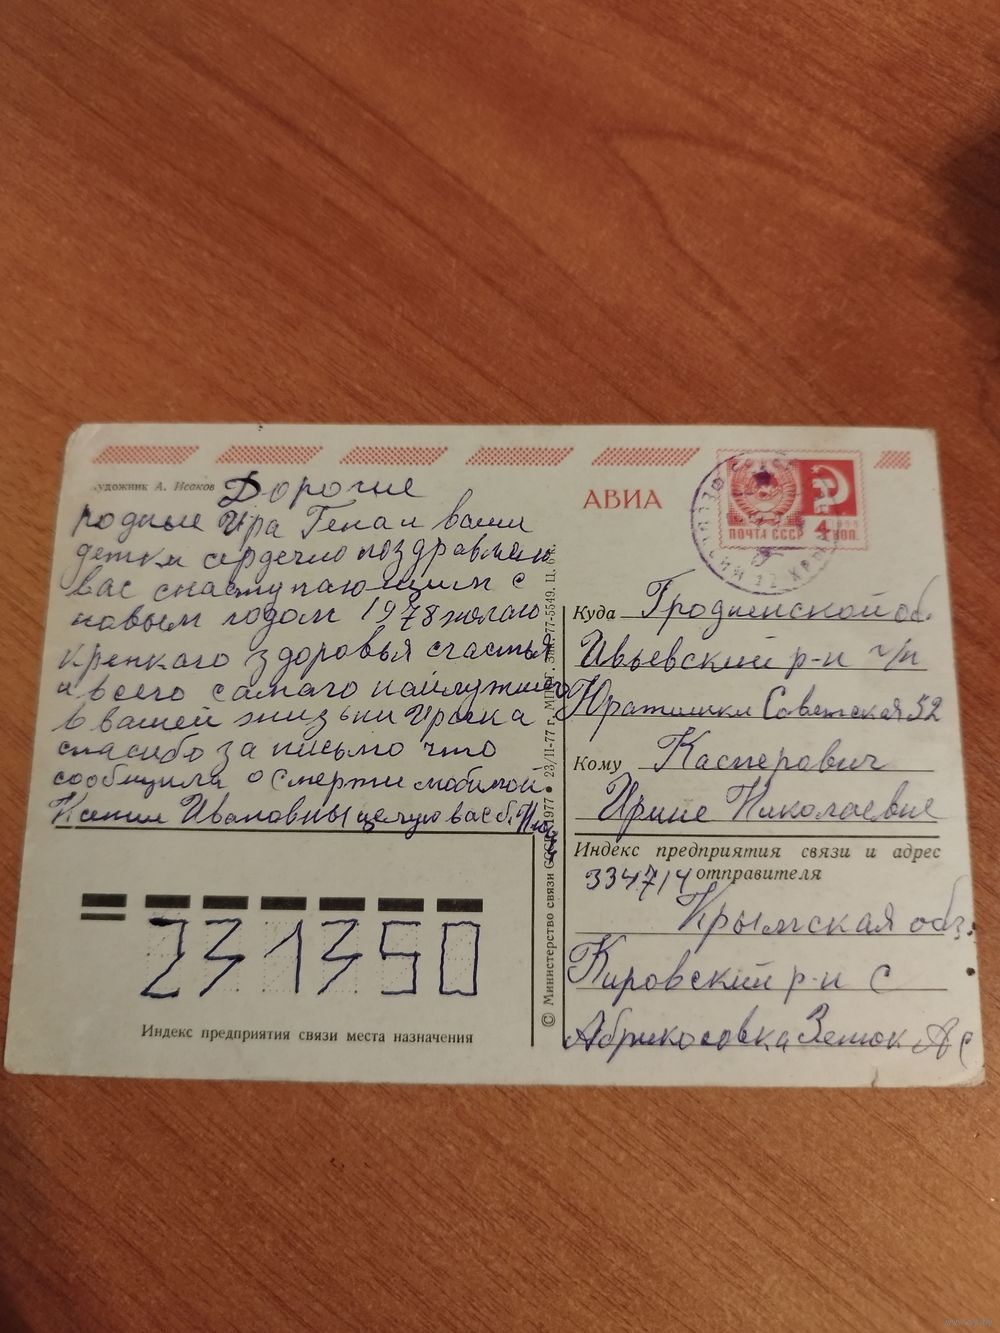 Художник А. Исаков
Дорогие
родные Ира Гена и ваши
детки сердечно поздравляю
вас снаступающим с
новым годом 1978 желаю
крепкого здоровья счастья
и всего самаго наилучшего
в вашей жизьни Ирочка
спасибо за письмо что
сообщили о смерти любимой
Ксении Ивановны целую вас
231350
Индекс предприятия связи места назначения
© Министерство связи СССР, 1977 • 23/II-77 г. Зак. 77-5549. Ц. 6 к.
АВИА
ПОЧТА СССР 4 КОП.
Куда Гродненской об.
Ивьевский р-н г/п
Юратишки Советская 52
Кому Касперович
Ирине Николаевне
Индекс предприятия связи и адрес
334714 отправителя
Крымская обл.
Кировский р-н с
Абрикосовка Зенюк А с